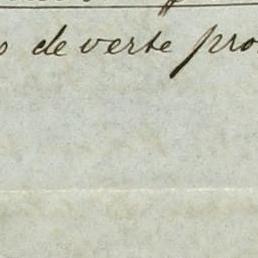 de verte pro